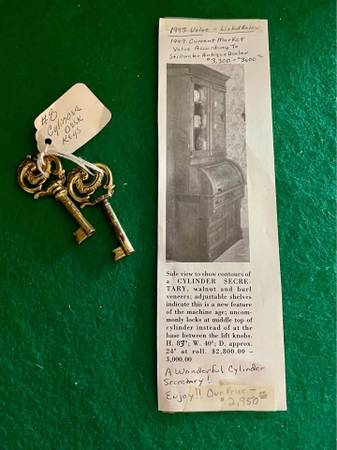 #8
Cylinder
Desk
Keys
1993 Value - Listed Below
1997 Current Market
Value According To
Stillwater Antique Dealer
$3,200 - $3600
Side view to show contours of
a CYLINDER SECRE-
TARY, walnut and burl
veneers; adjustable shelves
indicate this is a new feature
of the machine age; uncom-
monly locks at middle top of
cylinder instead of at the
base between the lift knobs.
H. 83"; W. 40"; D, approx.
24" at roll. $2,800.00 -
3,000.00
A Wonderful Cylinder
Secretary!
Enjoy!! Our Price -
$2,950.00